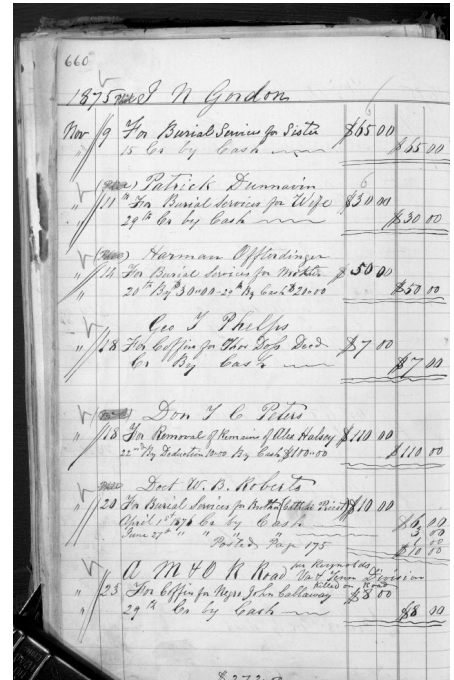 660
1875 I N Gordon
Nov 9 For Burial Services for Sister $65 00
" 15 Cr by Cash $65 00
Patrick Dunnavin
" 11th For Burial Services for Wife $30 00
" 29th Cr by Cash $30 00
Harman Offterdinger
" 14 For Burial Services for $50 00
" 20th By $30=00 - 29th By Cash $20=00 $50 00
Geo T Phelps
" 18 For Coffin for Thos Doss Decd $7 00
Cr By Cash $7 00
Don T C Peters
" 18 For Removal of Remains of Alex Halsey $110 00
" 22nd By Deduction 10=00 By Cash $100=00 $110 00
Doct W. B. Roberts
" 20 For Burial Services for (Catholic Priest) $10 00
April 1st 1876 Cr by Cash $6 00
June 27th " " " 3 00
" Posted Page 175 1 00
$10 00
A M & O R Road per Reynolds
Va & Tenn Division
" 25 For Coffin for Negro John Callaway Killed on Road $8 00
" 29th Cr by Cash $8 00
$272=00